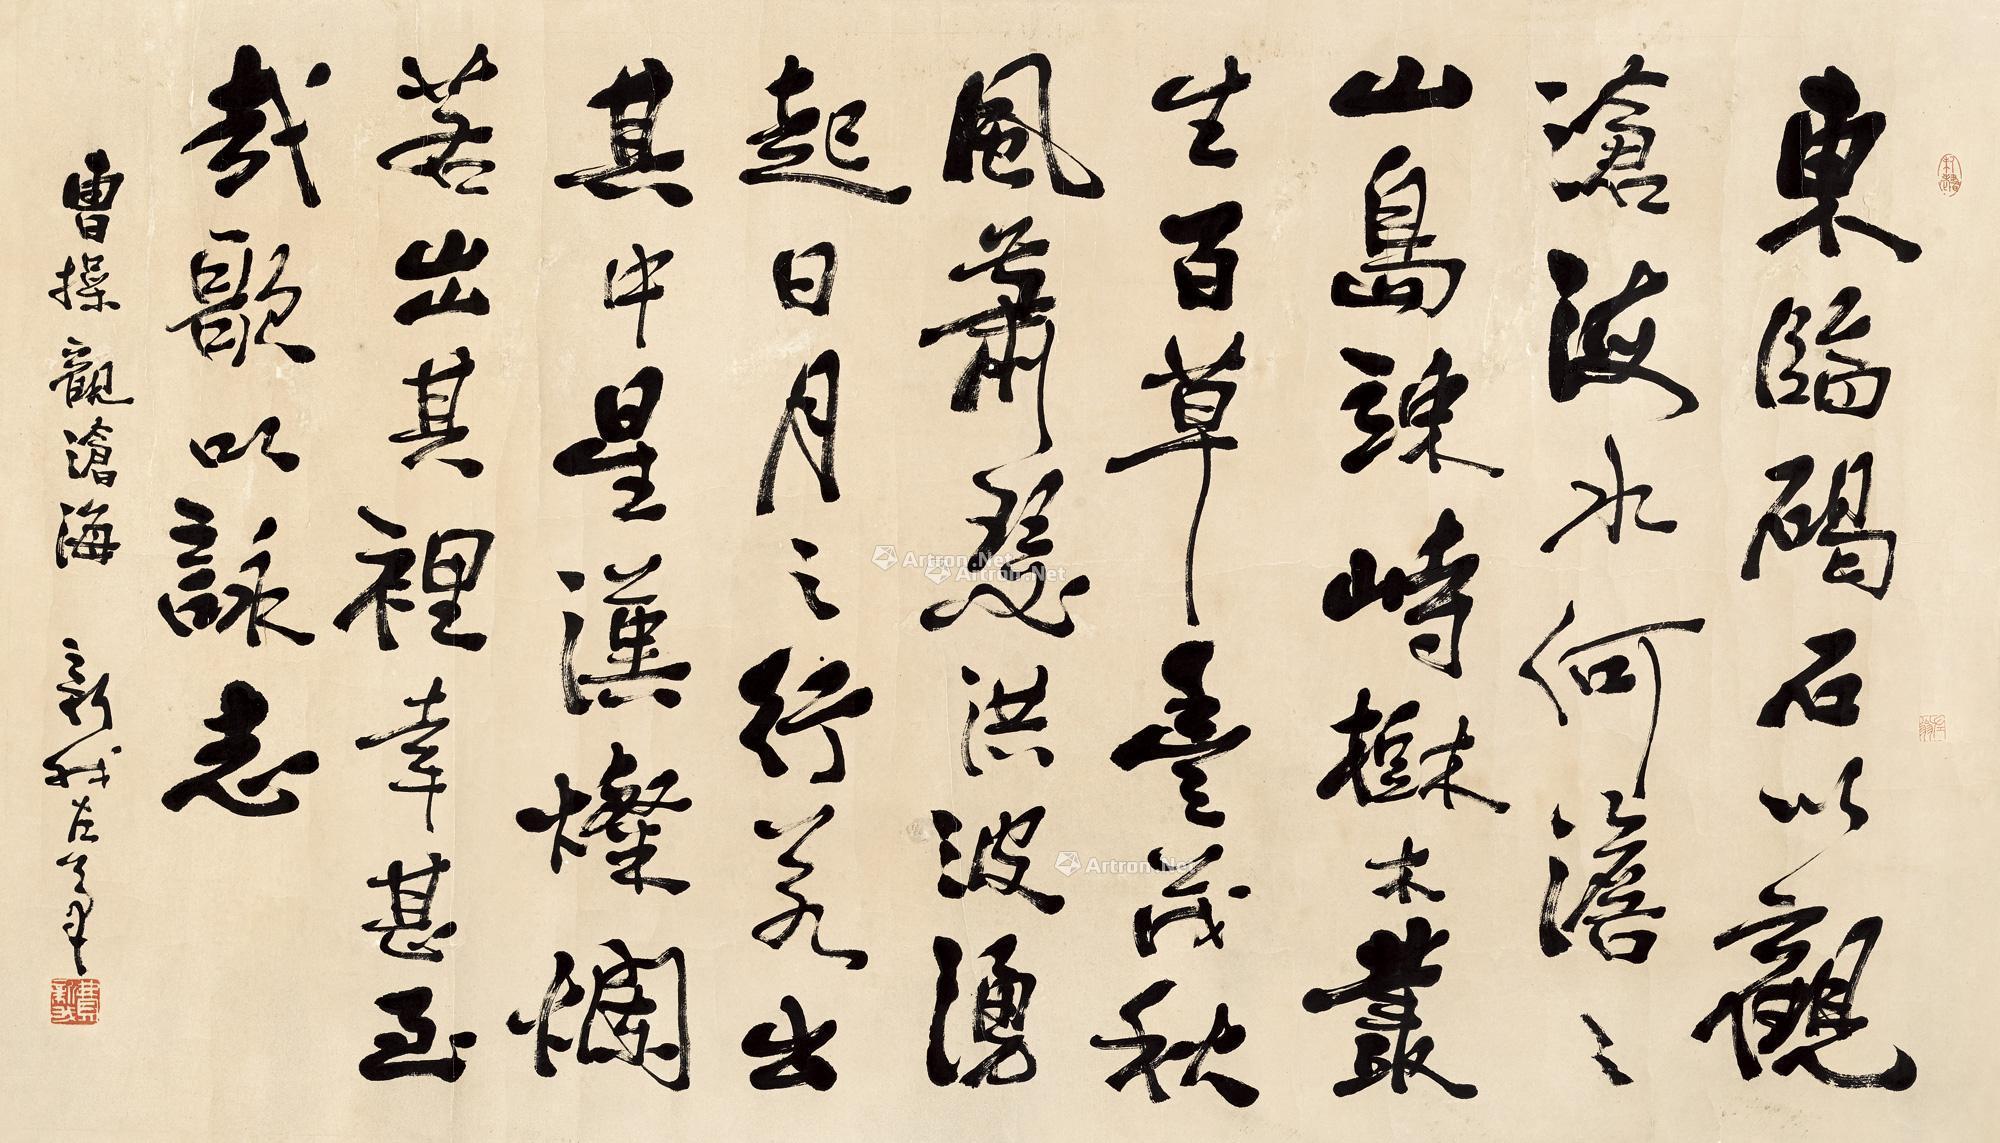 東臨碣石以觀
滄海水何澹〻
山島竦峙樹木叢
生百草豐茂秋
風蕭瑟洪波湧
起日月之行若出
其中星漢燦爛
若出其裡幸甚至
哉歌以詠志
曹操觀滄海 新我左筆
費新我
Artron.Net
Artron.Net
Artron.Net